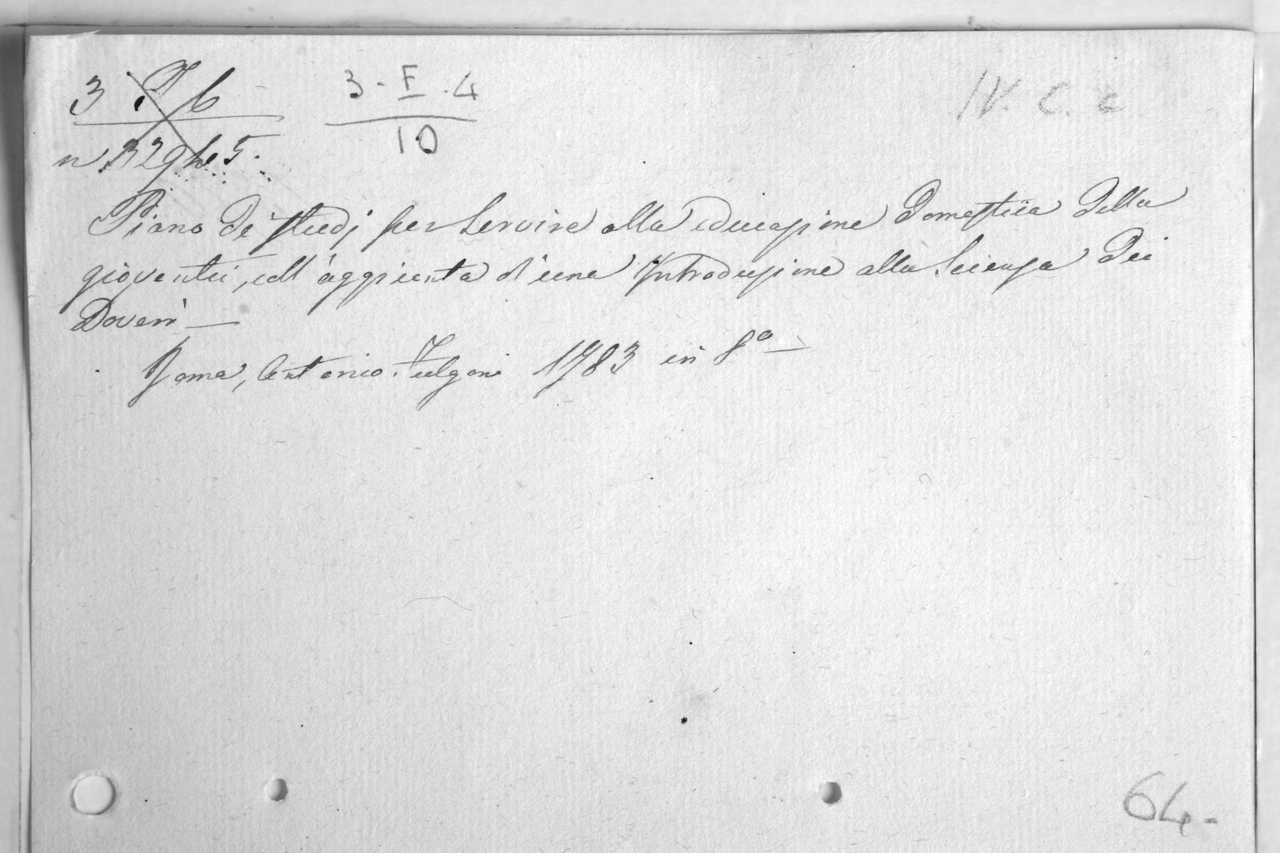 3 F 6
3 - F . 4
10
IV. C. c
n
Piano dè studj per servire alla educazione domestica della
gioventù, coll'aggiunta d'una Introduzione alla Scienza dei
Doveri —
Roma, Antonio Fulgoni 1783 in 8° —
64.-